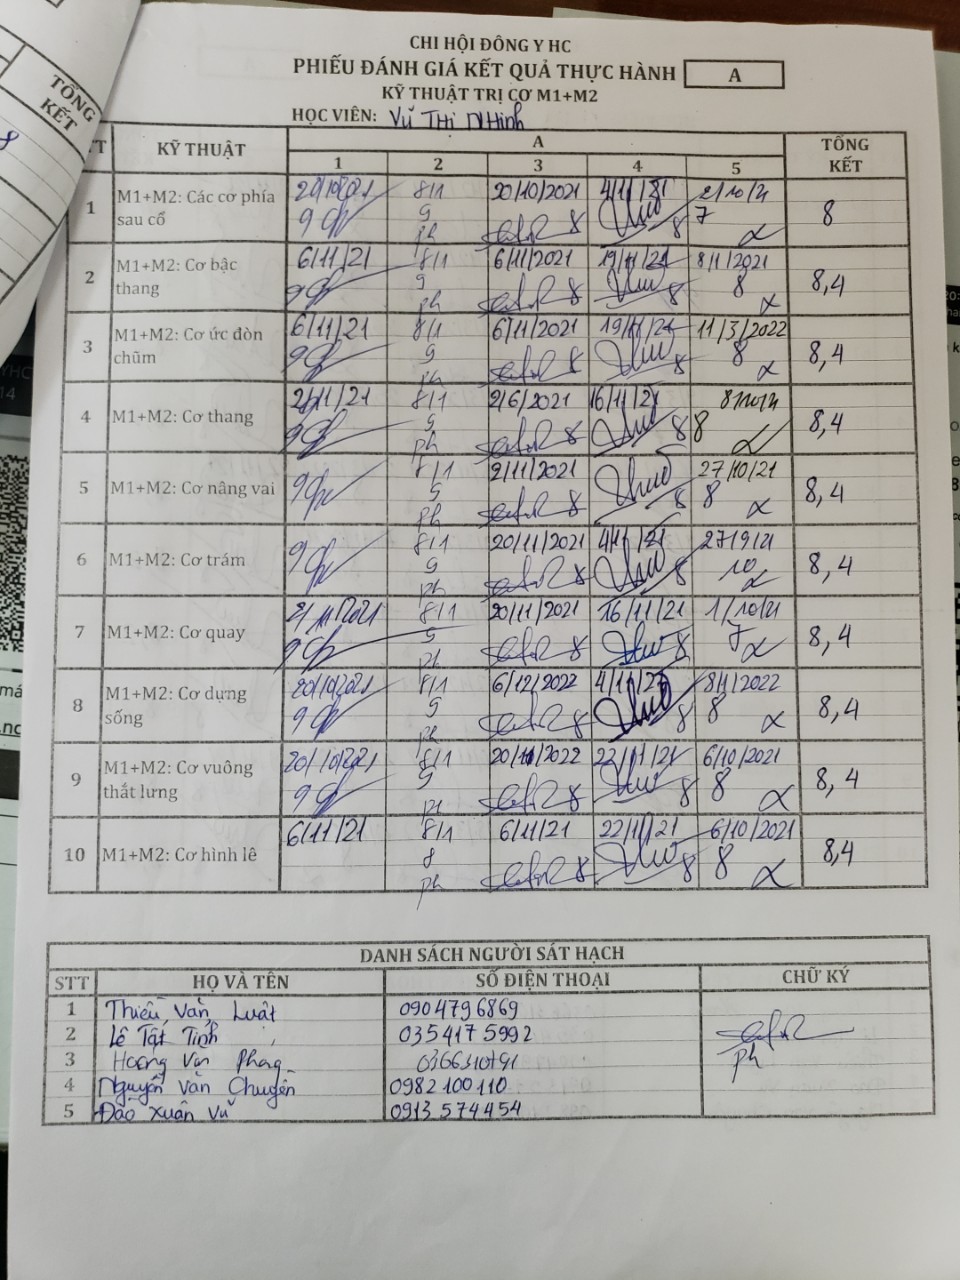 TỔNG
KẾT
CHI HỘI ĐÔNG Y HC
PHIẾU ĐÁNH GIÁ KẾT QUẢ THỰC HÀNH A
KỸ THUẬT TRỊ CƠ M1+M2
HỌC VIÊN: Vũ Thị Nhinh
TT KỸ THUẬT A TỔNG KẾT
1 2 3 4 5
1 M1+M2: Các cơ phía sau cổ 20/10/2021 9 8/1 9 ph 20/10/2021 8 4/11/21 8 2/10/21 7 8
2 M1+M2: Cơ bậc thang 6/11/21 9 8/1 9 ph 6/11/2021 8 19/11/21 8 8/1/2021 8 8,4
3 M1+M2: Cơ ức đòn chũm 6/11/21 9 8/1 9 ph 6/11/2021 8 19/11/21 8 11/3/2022 8 8,4
4 M1+M2: Cơ thang 2/11/21 9 8/1 9 ph 2/6/2021 8 16/11/21 8 8 8,4
5 M1+M2: Cơ nâng vai 9 8/1 9 ph 2/11/2021 8 8 27/10/21 8 8,4
6 M1+M2: Cơ trám 9 8/1 9 ph 20/11/2021 8 4/11/21 8 27/9/21 10 8,4
7 M1+M2: Cơ quay 2/11/2021 9 8/1 9 ph 20/11/2021 8 16/11/21 8 1/10/21 7 8,4
8 M1+M2: Cơ dựng sống 20/10/2021 9 8/1 9 ph 6/12/2022 8 8 8/1/2022 8 8,4
9 M1+M2: Cơ vuông thắt lưng 20/10/2021 9 8/1 9 ph 20/10/2022 8 22/11/21 8 6/10/2021 8 8,4
10 M1+M2: Cơ hình lê 6/11/21 8/1 8 ph 6/11/21 8 22/11/21 8 6/10/2021 8 8,4
DANH SÁCH NGƯỜI SÁT HẠCH
STT HỌ VÀ TÊN SỐ ĐIỆN THOẠI CHỮ KÝ
1 Thiều Văn Luật 0904796869
2 Lê Tất Tính 0354175992
3 Hoàng Văn Phang 0366310791 ph
4 Nguyễn Văn Chuyên 0982100110
5 Đào Xuân Vũ 0913574454